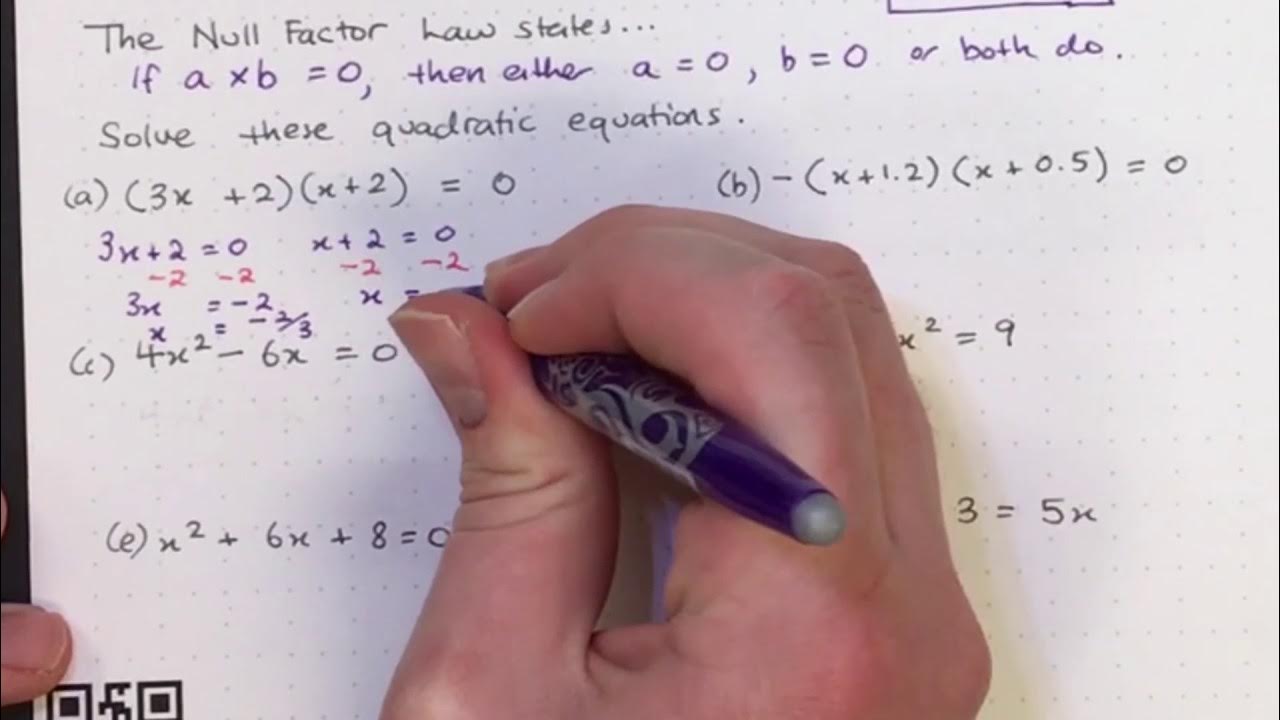 The Null Factor Law states...
If a × b = 0, then either a = 0, b = 0 or both do.
Solve these quadratic equations.
(a) (3x + 2)(x + 2) = 0
3x + 2 = 0 x + 2 = 0
-2 -2 -2 -2
3x = -2 x =
x = -2/3
(b) - (x + 1.2)(x + 0.5) = 0
(c) 4x² - 6x = 0
x² = 9
(e) x² + 6x + 8 = 0
3 = 5x